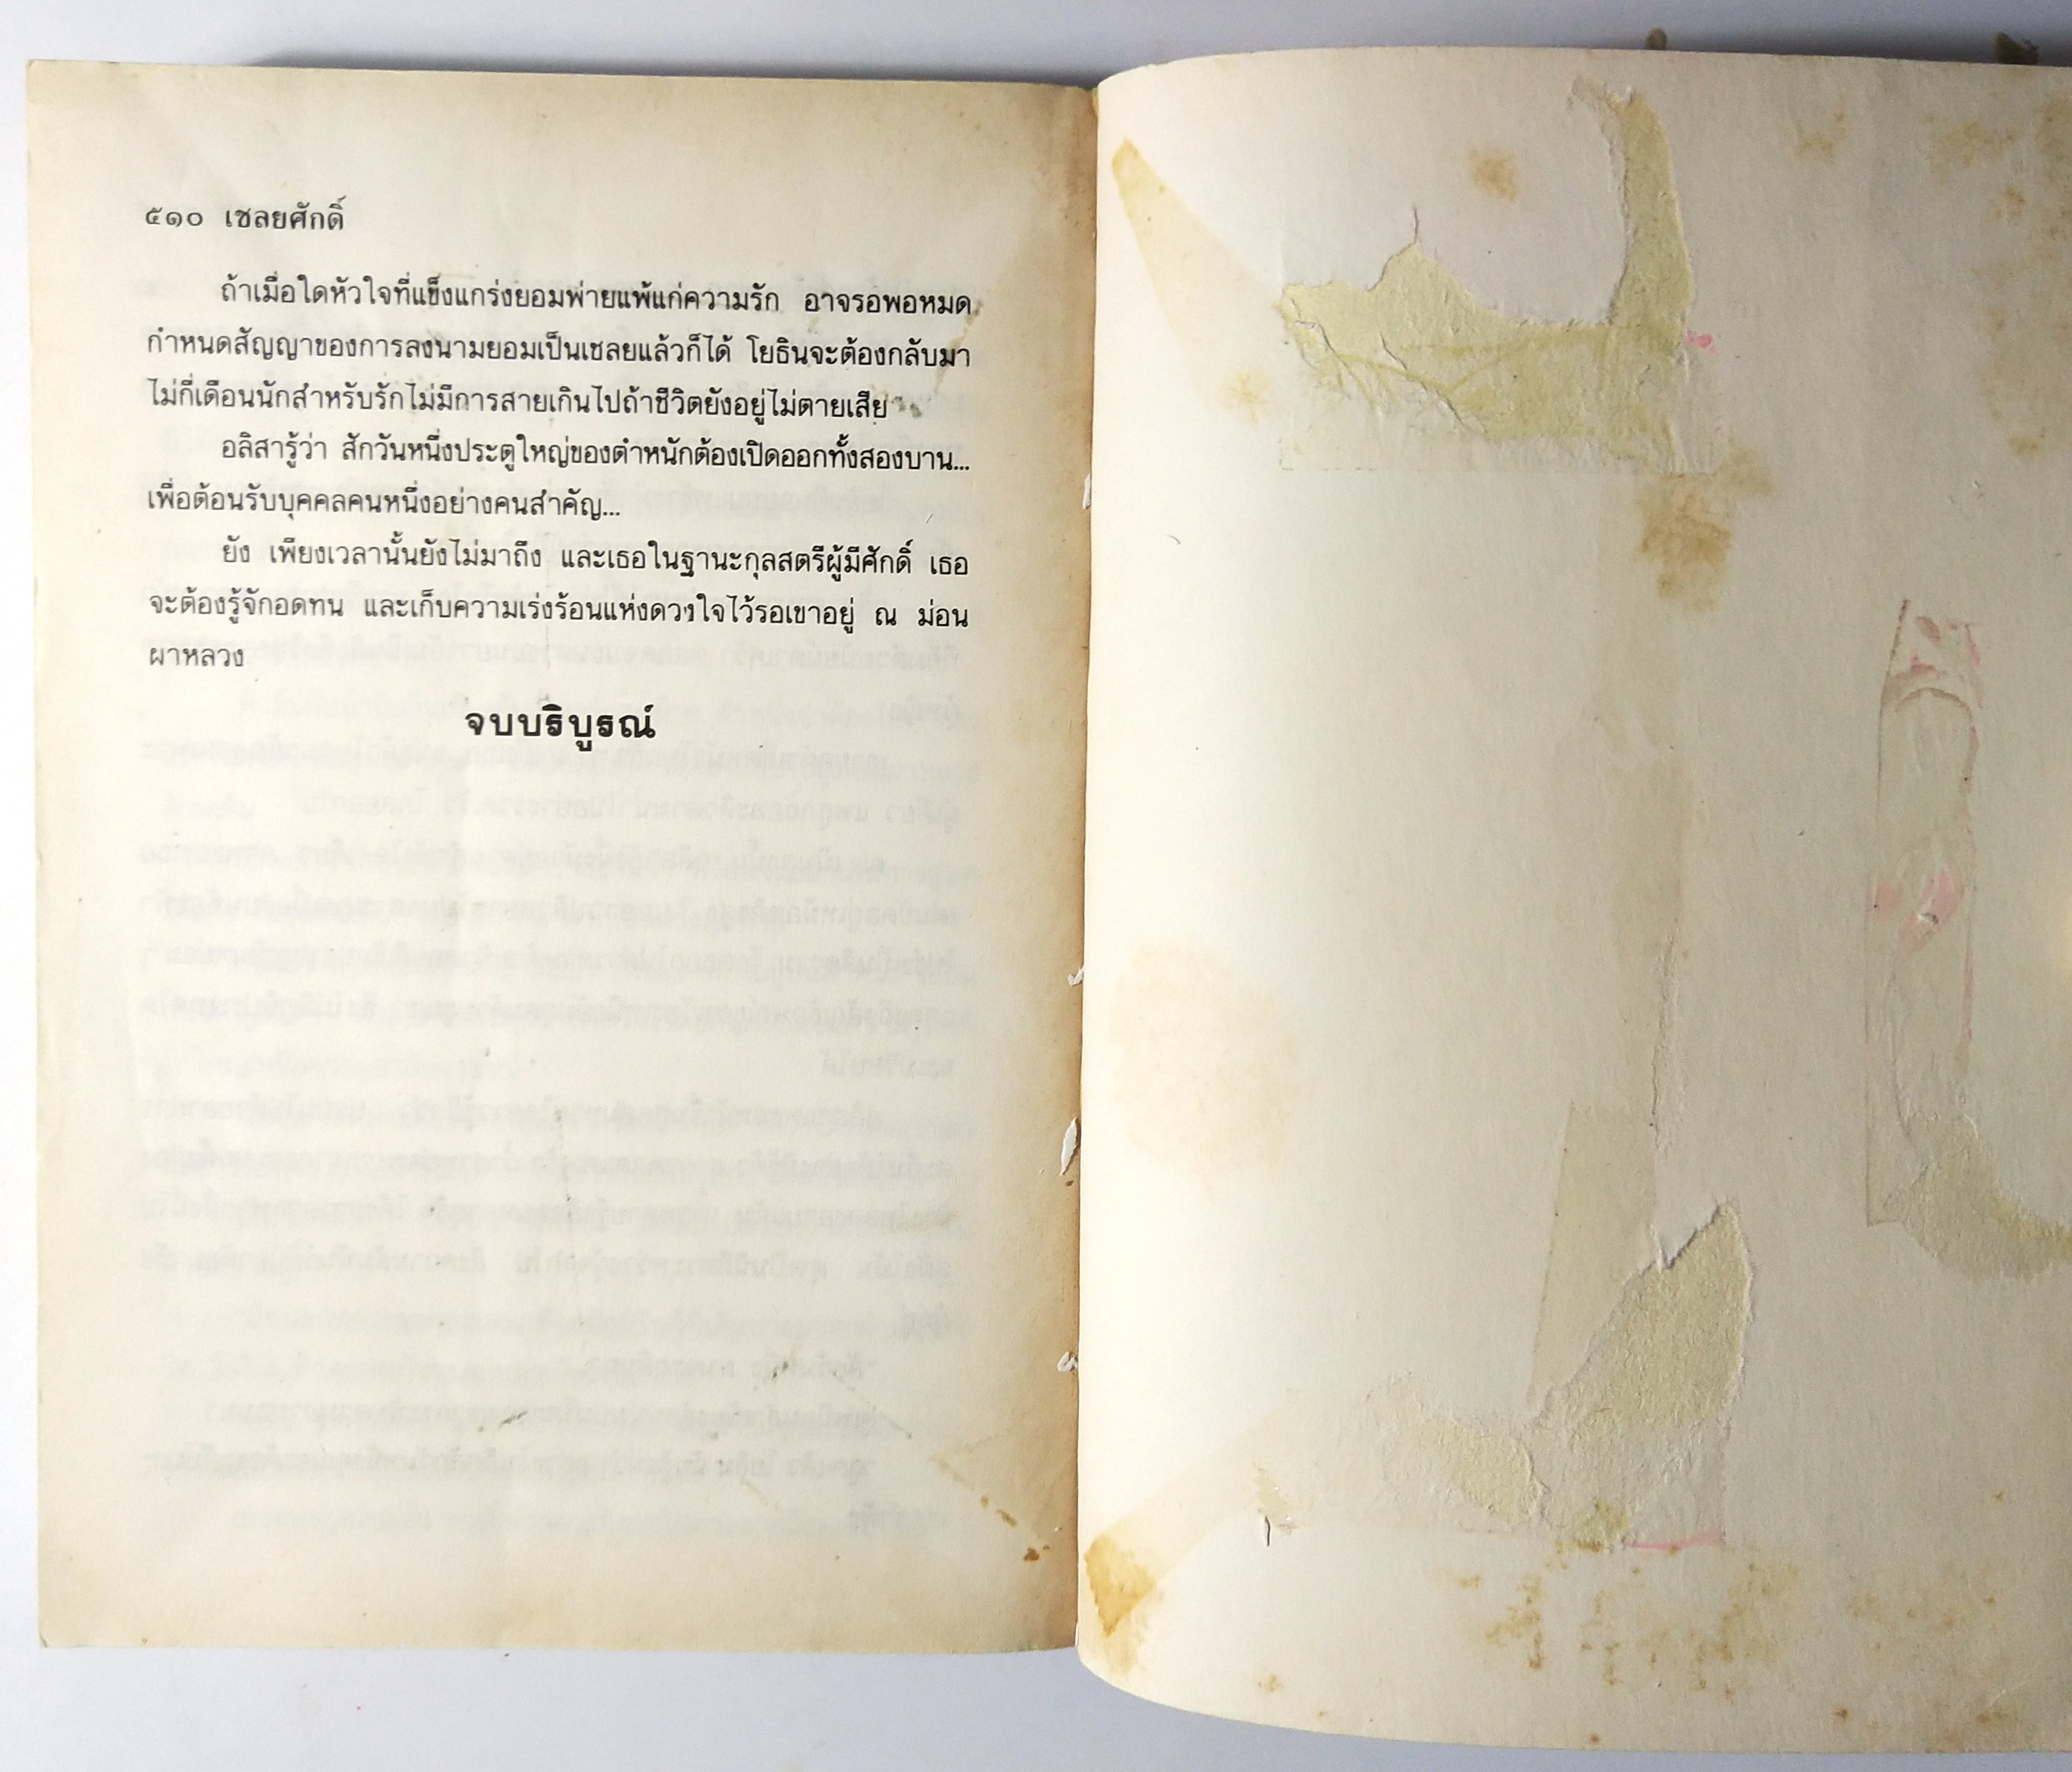 ๕๑๐ เชลยศักดิ์
ถ้าเมื่อใดหัวใจที่แข็งแกร่งยอมพ่ายแพ้แก่ความรัก อาจรอพอหมด
กำหนดสัญญาของการลงนามยอมเป็นเชลยแล้วก็ได้ โยธินจะต้องกลับมา
ไม่กี่เดือนนักสำหรับรักไม่มีการสายเกินไปถ้าชีวิตยังอยู่ไม่ตายเสีย
อลิสารู้ว่า สักวันหนึ่งประตูใหญ่ของตำหนักต้องเปิดออกทั้งสองบาน...
เพื่อต้อนรับบุคคลคนหนึ่งอย่างคนสำคัญ...
ยัง เพียงเวลานั้นยังไม่มาถึง และเธอในฐานะกุลสตรีผู้มีศักดิ์ เธอ
จะต้องรู้จักอดทน และเก็บความเร่งร้อนแห่งดวงใจไว้รอเขาอยู่ ณ ม่อน
ผาหลวง
จบบริบูรณ์